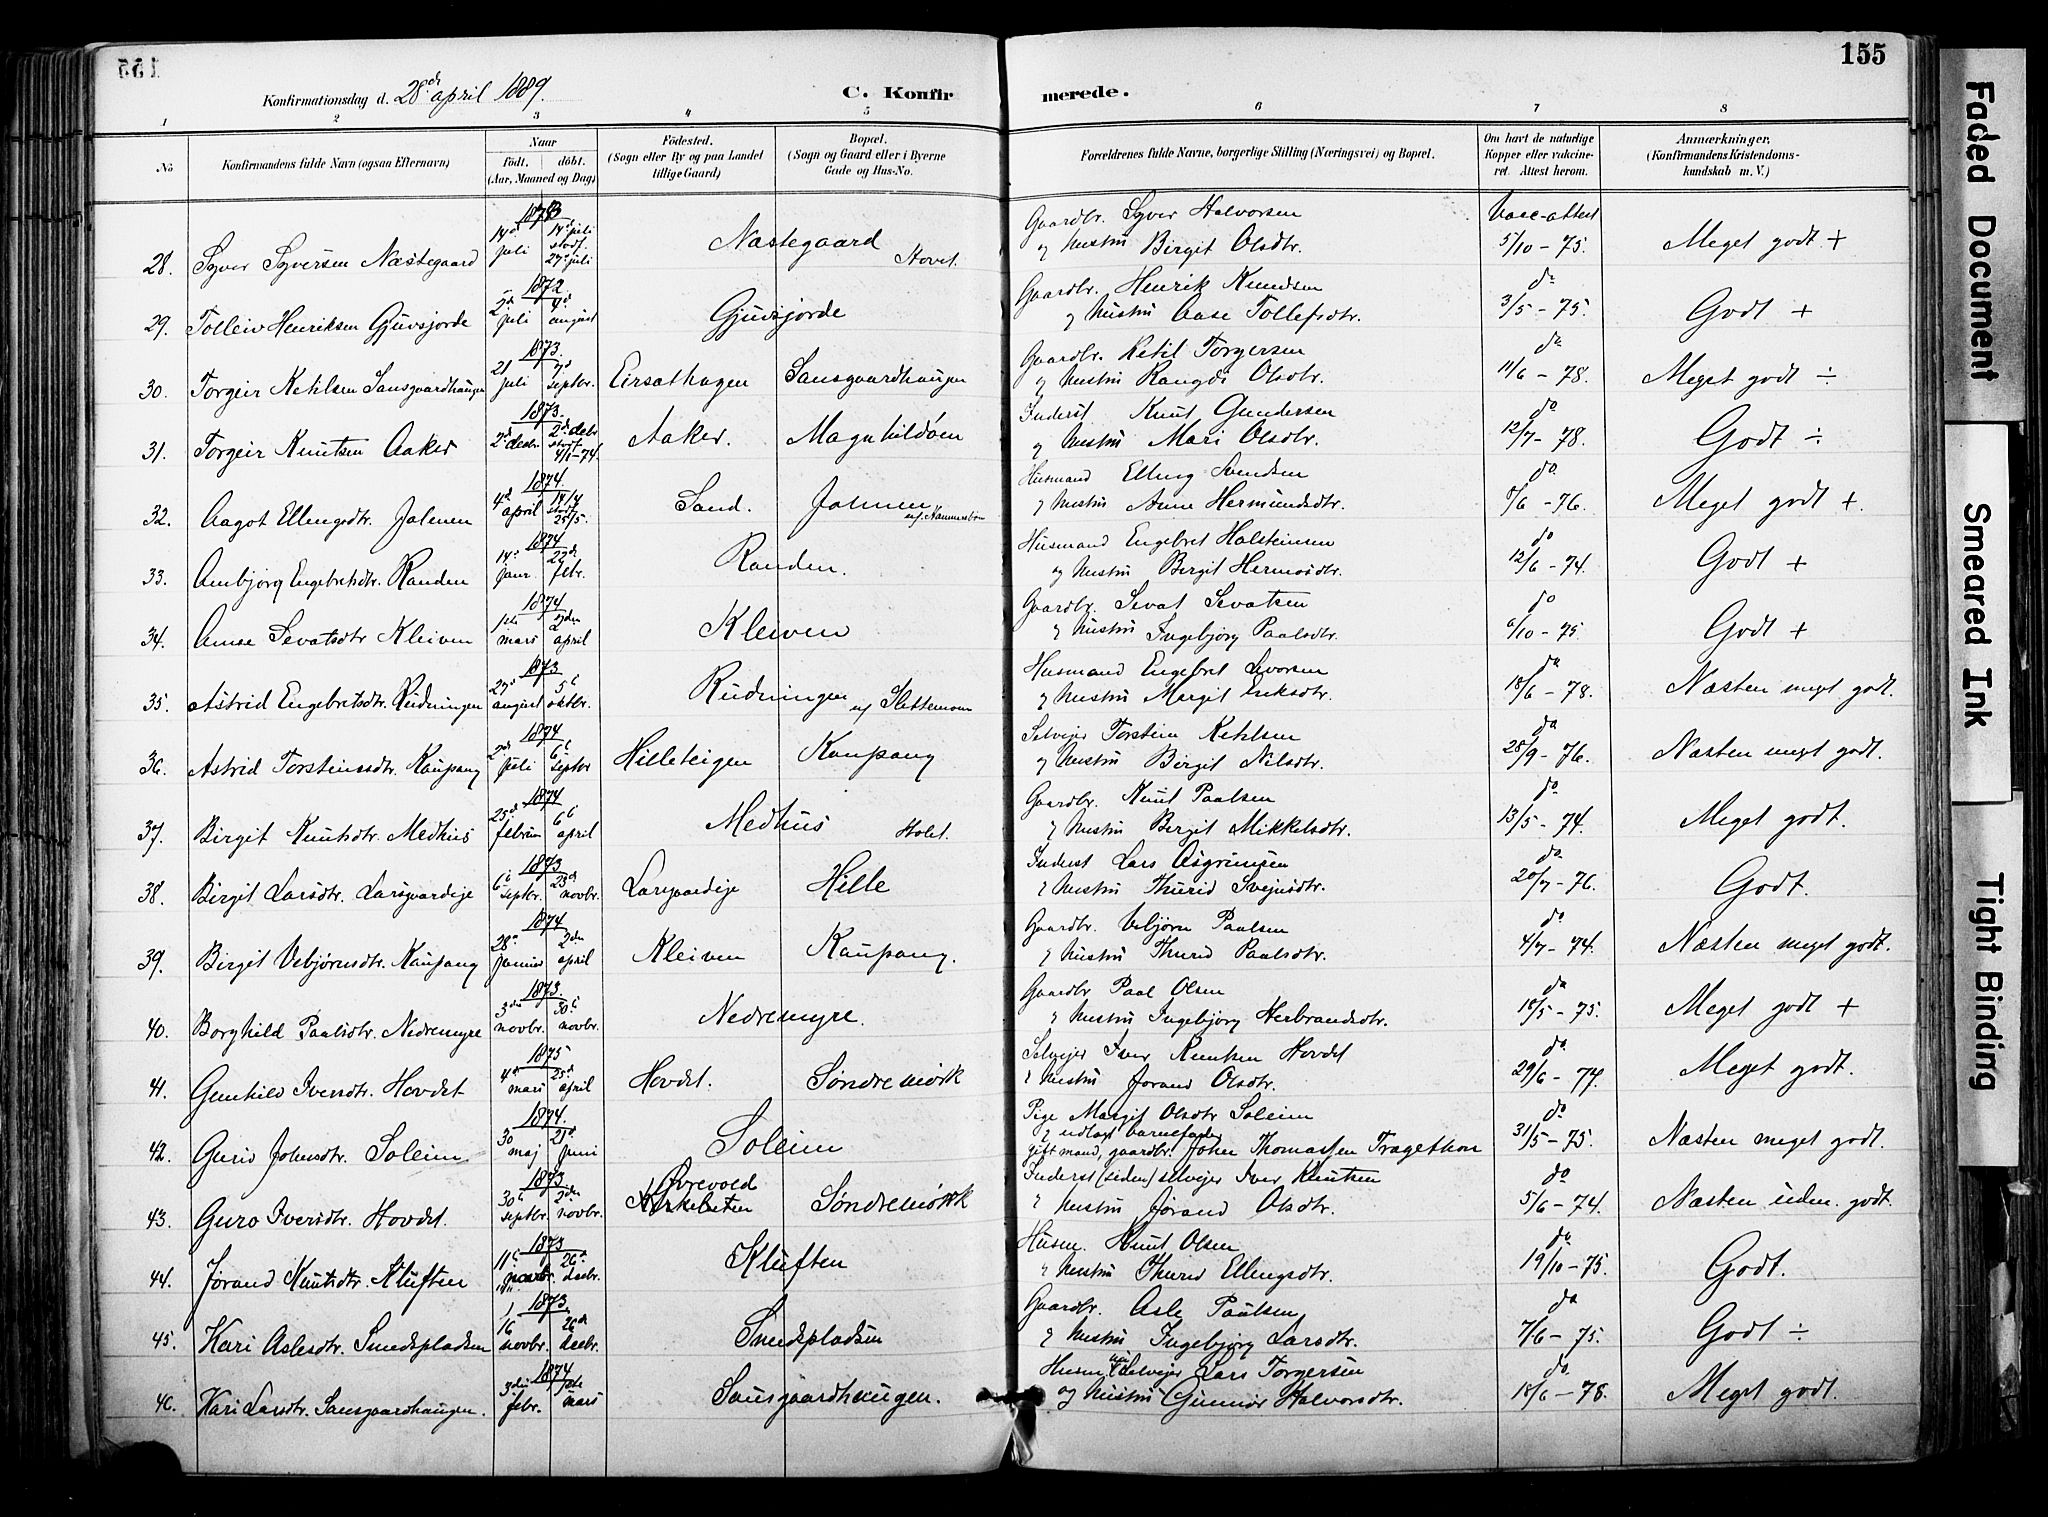 155
155
Konfirmationsdag d. 28de april 1889.
C. Konfir
merede.
1 2 3 4 5 6 7 8
No
Konfirmandens fulde Navn (ogsaa Efternavn)
Naar
født. døbt.
(Aar, Maaned og Dag)
Födested.
(Sogn eller By og paa Landet
tillige Gaard)
Bopæl.
(Sogn og Gaard eller i Byerne
Gade og Hus-No.
Forældrenes fulde Navne, borgerlige Stilling (Næringsvei) og Bopæl.
Om havt de naturlige
Kopper eller vakcine-
ret. Attest herom.
Anmærkninger.
(Konfirmandens Kristendoms-
kundskab m. V.)
28. Syver Syversen Næstegaard 1873 14de juli 14de juli stadf. 27de juli Næstegaard Hovet. Gaardbr. Syver Halvorsen
og hustru Birgit Olsdtr. Vacc-attest 5/10 - 75. Meget godt +
29. Tolleiv Henriksen Gjuvsjorde 1872 2d juli 4d august Gjuvsjorde Gaardbr. Henrik Knudsen
og hustru Aase Tollefsdtr. do 3/5 - 75. Godt +
30. Torgeir Ketilsen Sansgaardhaugen 1873. 21 juli 7d septbr. Eirsathagen Sansgaardhaugen Gaardbr. Ketil Torgersen
og hustru Rangdi Olsdtr. do 11/6 - 78. Meget godt ÷
31. Torgeir Knutsen Aaker 1873. 2d decbr. 2d decbr stadf. 4/1-74. Aaker. Magnhildøen Inderst Knut Gundersen
og hustru Mari Olsdtr. do 12/7 - 78. Godt ÷
32. Aagot Ellingsdtr. Jalmen 1874. 4d april 14/4 stadf. 25/5. Sand. Jalmen Husmand Elling Svendsen
og hustru Anne Hermundsdtr. do 8/6 - 76. Meget godt +
33. Ambjørg Engebretsdtr. Randen 1874 14de janr. 22de febr. Randen. Husmand Engebret Halsteinsen
og hustru Birgit Hermosdtr. do 12/6 - 74. Godt +
34. Anne Sevatsdtr. Kleiven 1874 1ste mars 2den april Kleiven Gaardbr. Sevat Sevatsen
og hustru Ingebjørg Paalsdtr. do 6/10 - 75. Godt +
35. Astrid Engebretsdtr. Rudningen 1873 27de august 5te oktbr. Rudningen u/ Slettemoen Husmand Engebret Sevorsen
og hustru Margit Eriksdtr. do 18/6 - 78. Næsten meget godt.
36. Astrid Torsteinsdtr. Kaupang 1874 2den juli 6te septbr Hilleteigen Kaupang Selvejer Torstein Ketilsen
og hustru Birgit Nilsdtr. do 28/9 - 76. Næsten meget godt.
37. Birgit Knutsdtr. Medhus 1874 25de februar 6te april Medhus Holet. Gaardbr. Knut Paalsen
og hustru Birgit Mikkelsdtr. do 13/5 - 74. Meget godt.
38. Birgit Larsdtr. Larsgaardeje 1873 6te septbr. 23de novbr. Larsgaardeje Hille Inderst Lars Asgrimsen
og hustru Thurid Svejnsdtr. do 20/7 - 76. Godt.
39. Birgit Vebjørnsdtr. Kaupang 1874 28de januar 2den april Kleiven Kaupang. Gaardbr. Vebjørn Paalsen
og hustru Thurid Paalsdtr. do 4/7 - 74. Næsten meget godt.
40. Borghild Paalsdtr. Nedremyre 1873. 3die novbr. 30te novbr. Nedremyre. Gaardbr Paal Olsen
og hustru Ingebjørg Herbrandsdtr. do 18/5 - 75. Meget godt +
41. Gunhild Iversdtr. Hovdet 1875 4de mars 25de april Hovdet. Søndremørk Selvejer Iver Knutsen Hovdet
og hustru Jorand Olsdtr. do 29/6 - 77. Meget godt.
42. Guro Johnsdtr. Soleim 1874. 30 maj 21de juni Soleim Pige Margit Olsdtr Soleim
og udlagt barnefader
gift mand, gaardbr. John Thomassen Tragethon do 31/5 - 75. Næsten meget godt.
43. Guro Iversdtr. Hovdet. 1873. 30te septbr. 2den novbr. Søndremørk Inderst (siden) selvejer Iver Knutsen
og hustru Jorand Olsdtr. do 5/6 - 74. Næsten uden. godt.
44. Jorand Knutsdtr. Kluften 1873 11te novbr. 26de decbr. Kluften Husm. Knut Olsen
og hustru Thurid Ellingsdtr. do 19/10 - 75. Godt.
45. Kari Aslesdtr. Smedspladsen 1873. 16 novbr. 26de decbr. Smedspladsen Gaardbr. Asle Paulsen
og hustru Ingebjørg Larsdtr. do 7/6 - 75. Godt ÷
46. Kari Larsdtr. Sansgaardhaugen. 1874 3die febr. mars Sansgaardhaugen. Husm Selvejer Lars Torgersen
og hustru Gunnor Halvorsdtr. do 18/6 - 78. Meget godt.
Faded Document
Smeared Ink
Tight Binding